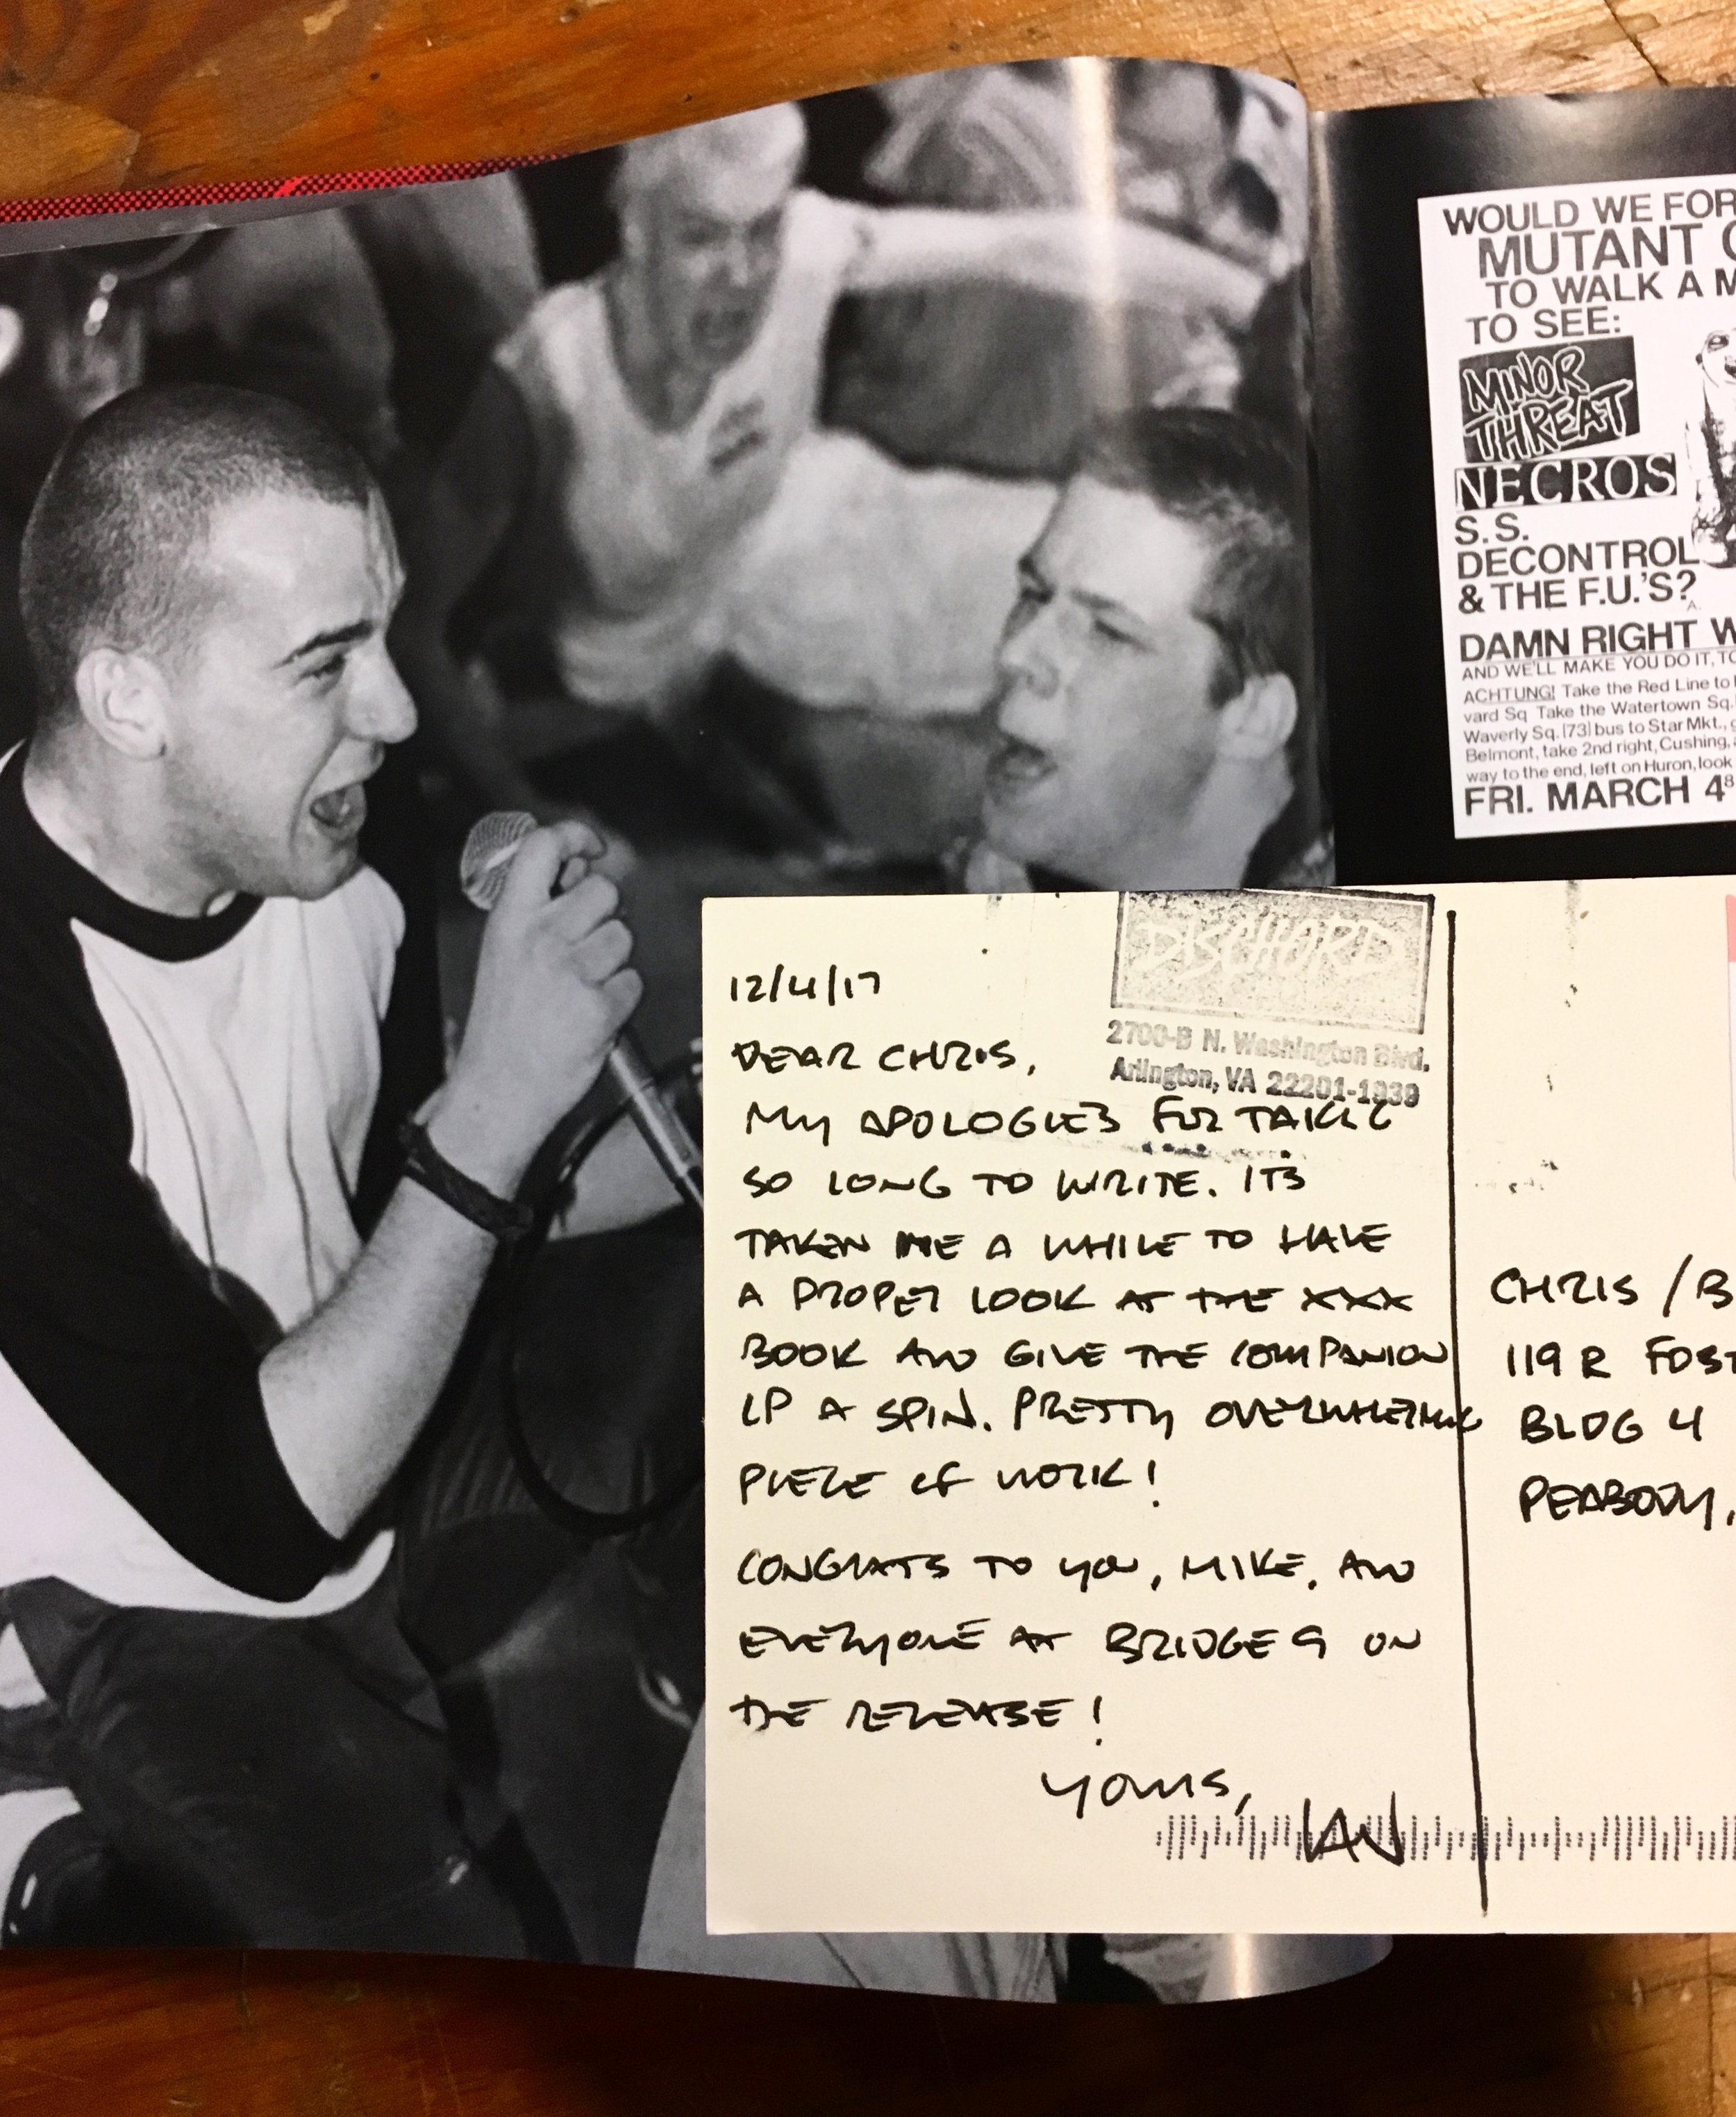 WOULD WE FOR
MUTANT
TO WALK A M
TO SEE:
MINOR
THREAT
NECROS
S.S.
DECONTROL
& THE F.U.'S?
DAMN RIGHT W
AND WE'LL MAKE YOU DO IT, TO
ACHTUNG! Take the Red Line to
vard Sq Take the Watertown Sq.
Waverly Sq. [73] bus to Star Mkt.,
Belmont, take 2nd right, Cushing,
way to the end, left on Huron, look
FRI. MARCH 4
DISCHORD
2700-B N. Washington Blvd.
Arlington, VA 22201-1939
12/4/17
DEAR CHRIS,
MY APOLOGIES FOR TAKING
SO LONG TO WRITE. ITS
TAKEN ME A WHILE TO HAVE
A PROPER LOOK AT THE XXX
BOOK AND GIVE THE COMPANION
LP A SPIN. PRETTY OVERWHELMING
PIECE OF WORK!
CONGRATS TO YOU, MIKE, AND
EVERYONE AT BRIDGE 9 ON
THE RELEASE!
YOURS,
IAN
CHRIS / B
119 R FOST
BLDG 4
PEABODY,